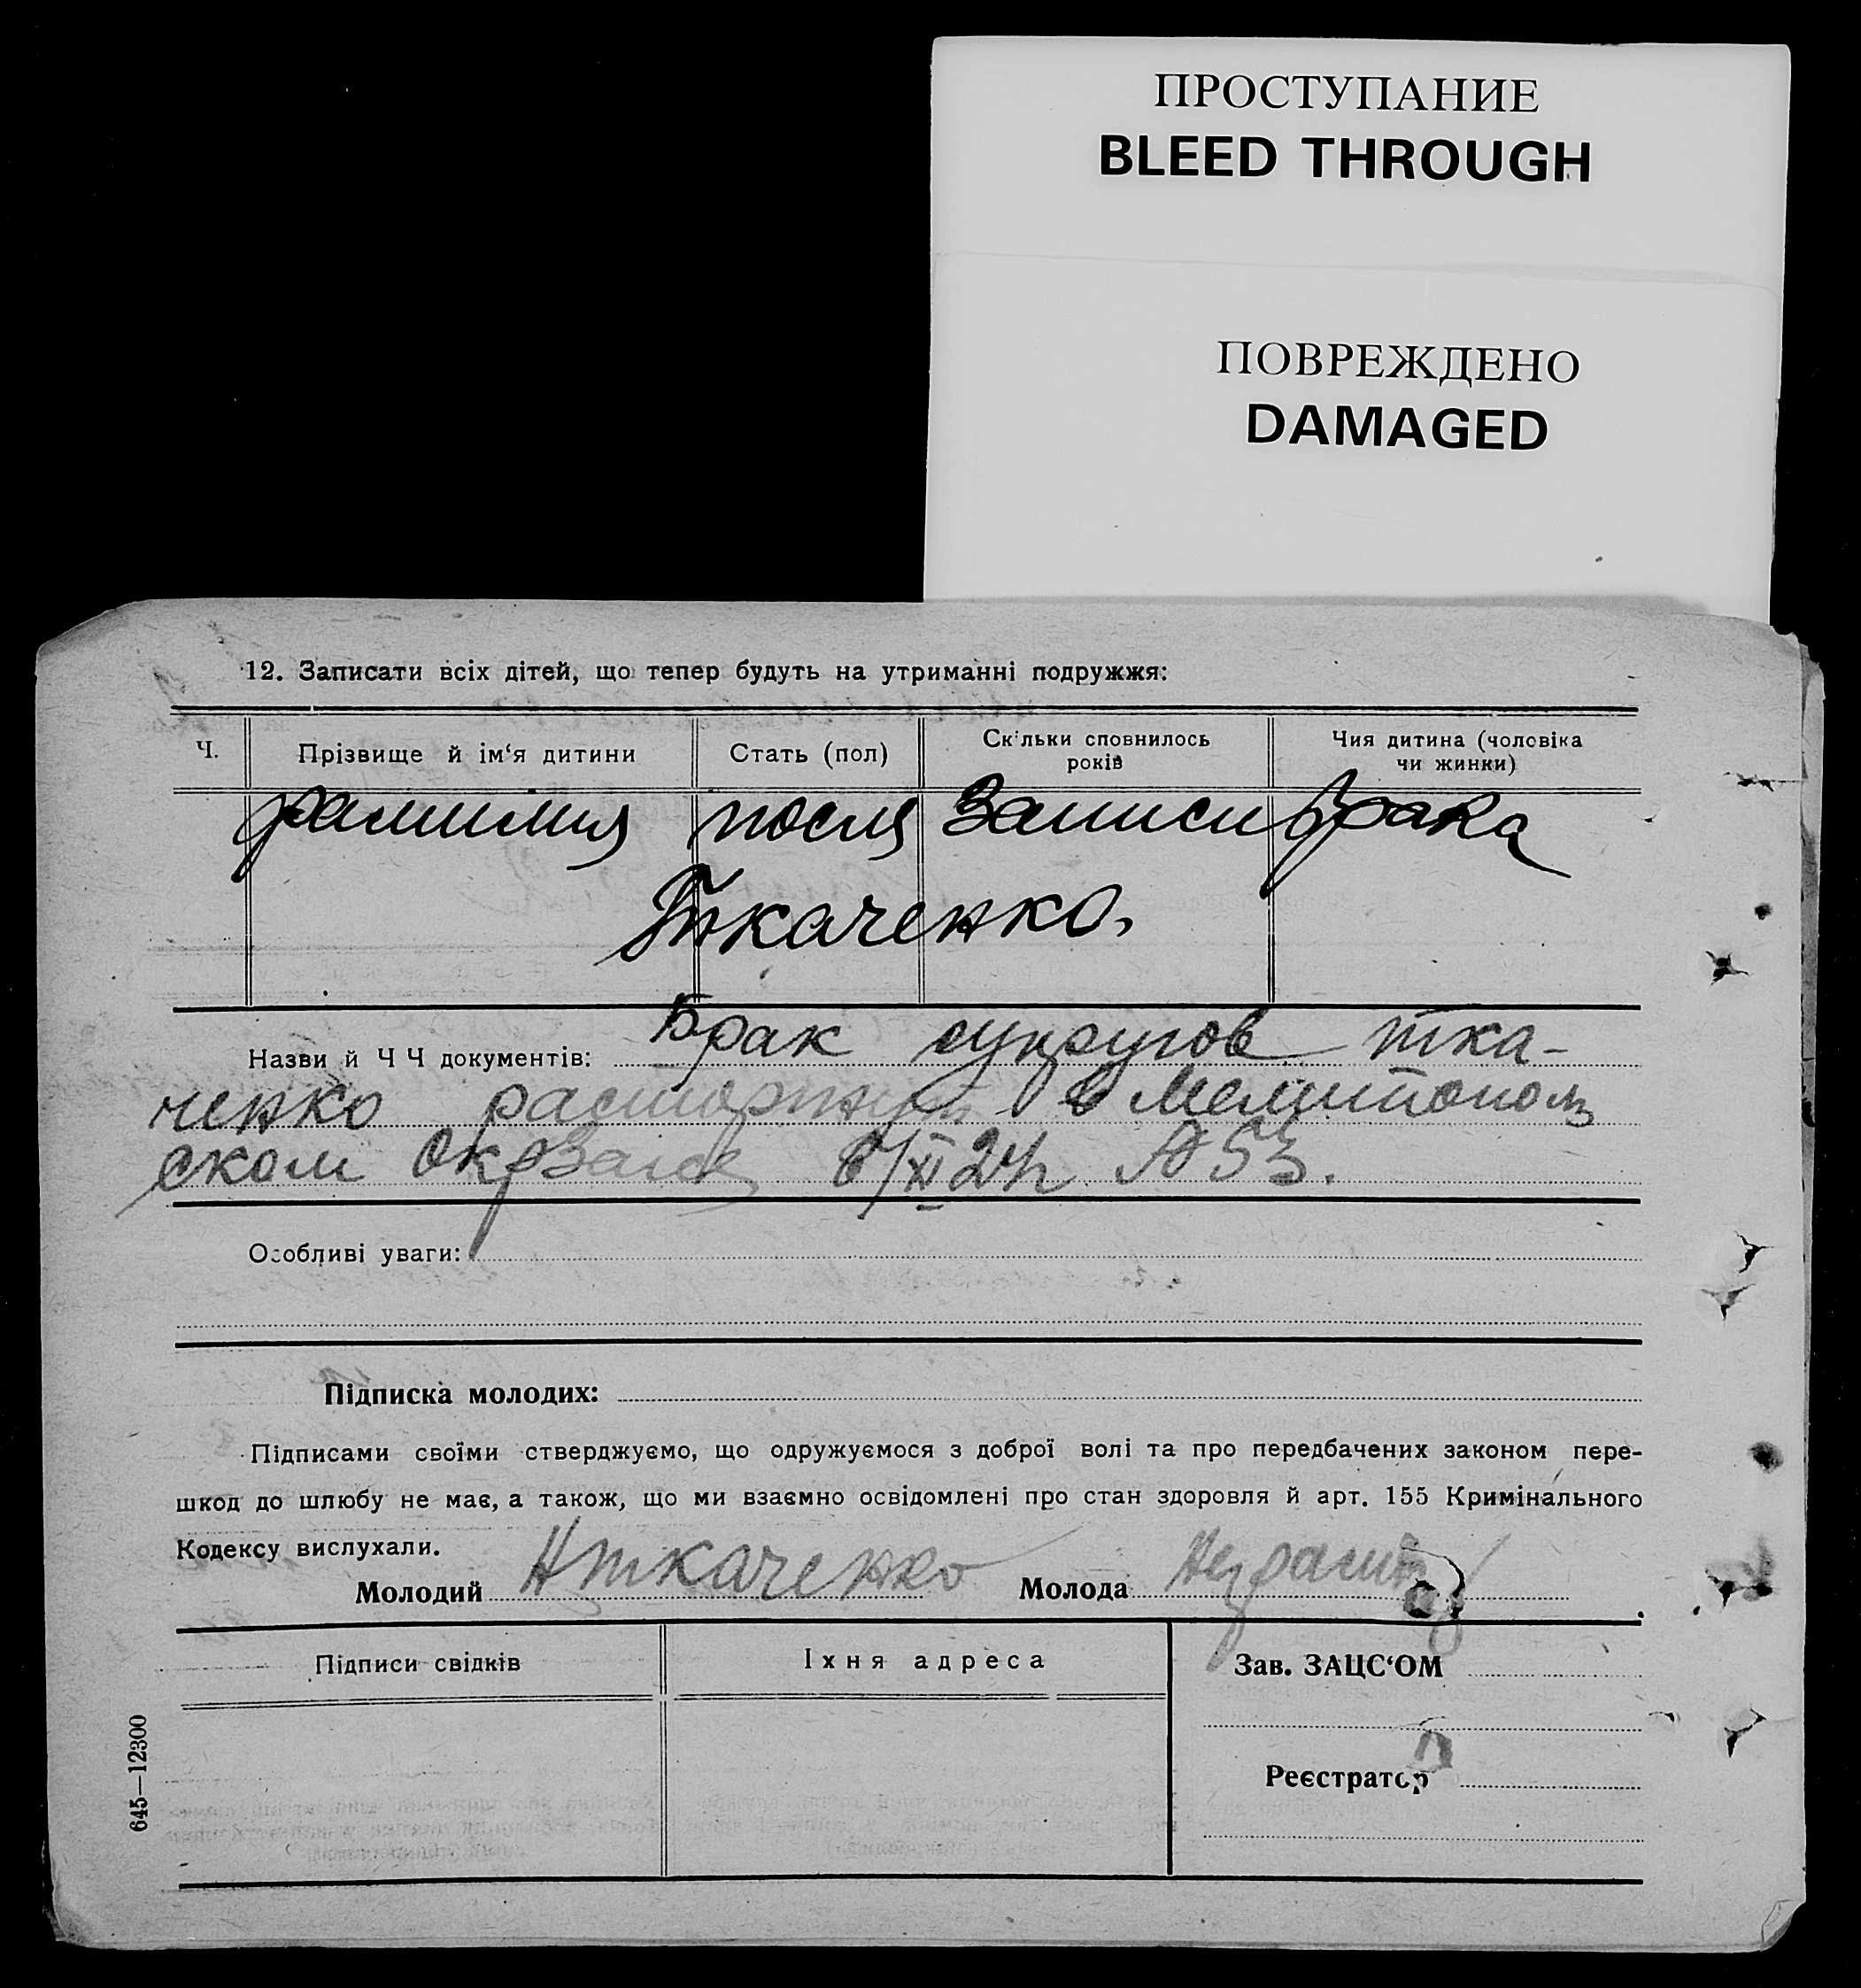 ПРОСТУПАНИЕ
BLEED THROUGH
ПОВРЕЖДЕНО
DAMAGED
12. Записати всіх дітей, що тепер будуть на утриманні подружжя:
Ч.
Прізвище й ім‘я дитини
Стать (пол)
Скільки сповнилось
років
Чия дитина (чоловіка
чи жинки)
фамилия после записи брака
Ткаченко.
Назви й Ч Ч документів: Брак супругов тка-
ченко расторгнут в Мелитополь
ском
Особливі уваги:
Підписка молодих:
Підписами своїми стверджуємо, що одружуємося з доброї волі та про передбачених законом пере-
шкод до шлюбу не має, а також, що ми взаємно освідомлені про стан здоровля й арт. 155 Кримінального
Кодексу вислухали.
Молодий Нткаченко Молода
Підписи свідків
Їхня адреса
Зав. ЗАЦС‘ОМ
Реєстратор
645—12300